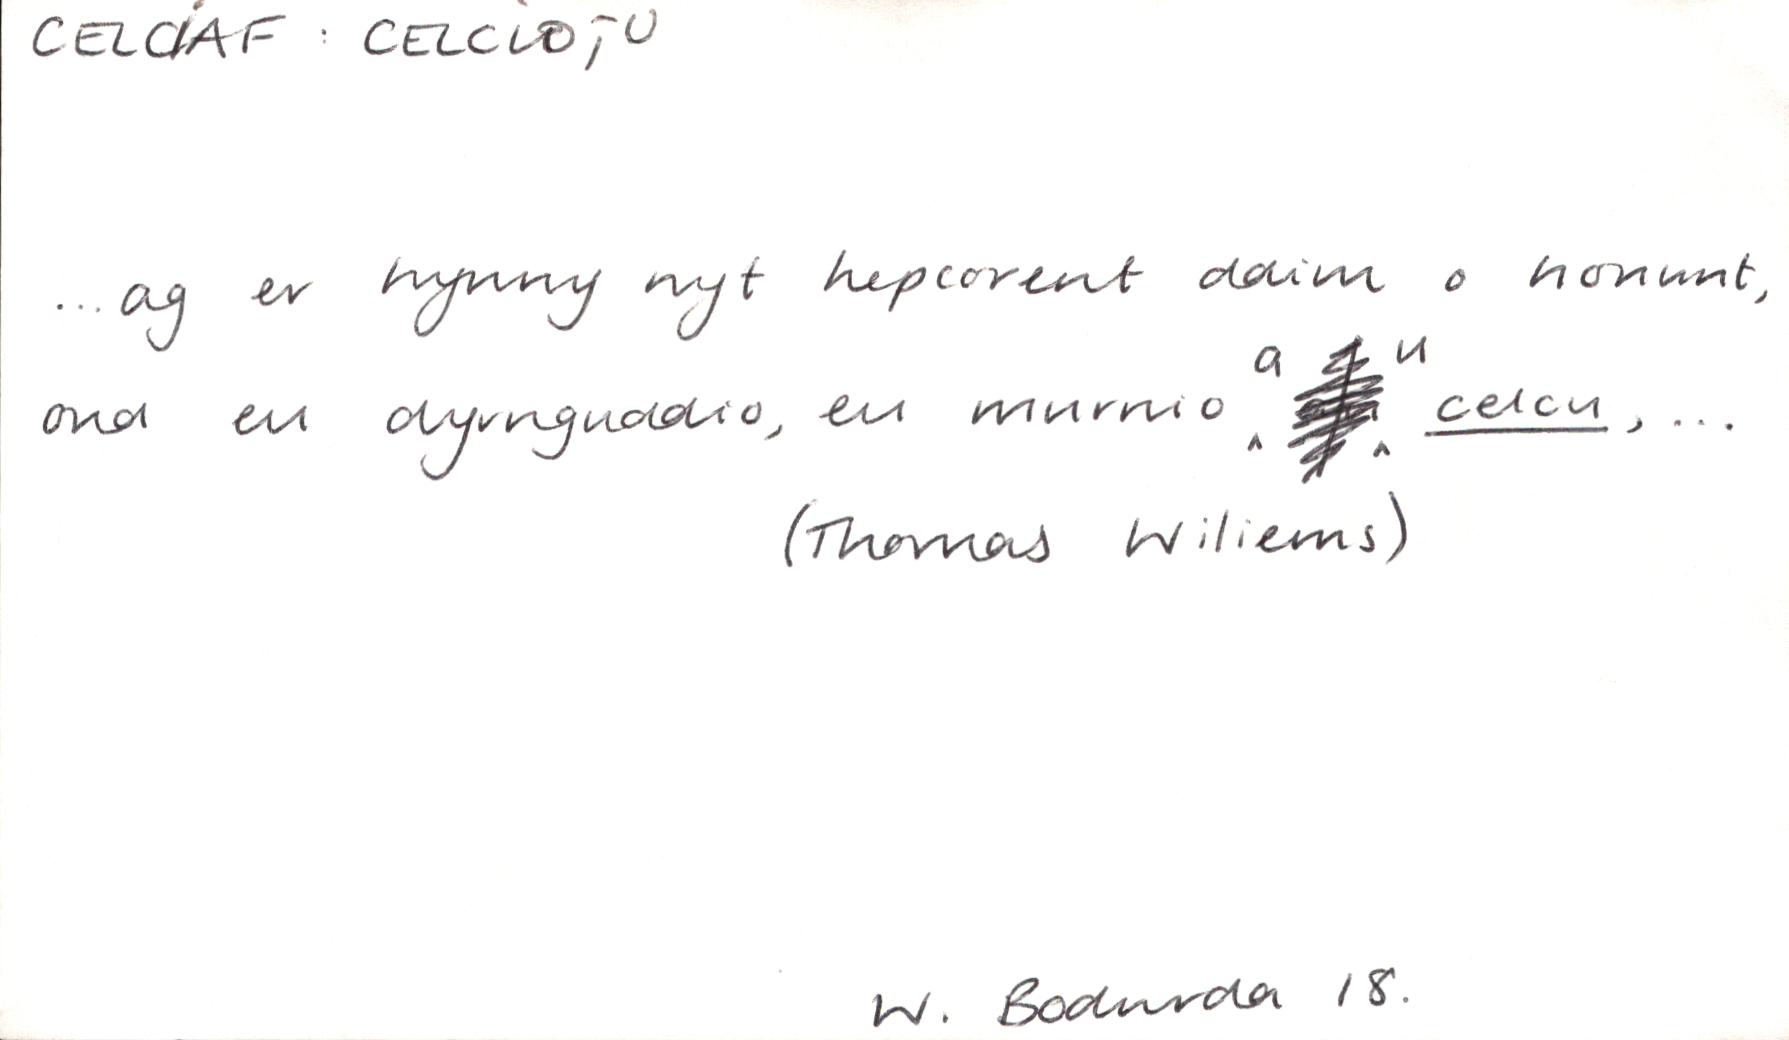 CELCIAF : CELCIO, -U
...ag er hynny nyt hepcorent ddim o honunt,
ond eu dyrnguddio, eu murnio a u celcu, ...
(Thomas Wiliems)
W. Bodwrda 18.